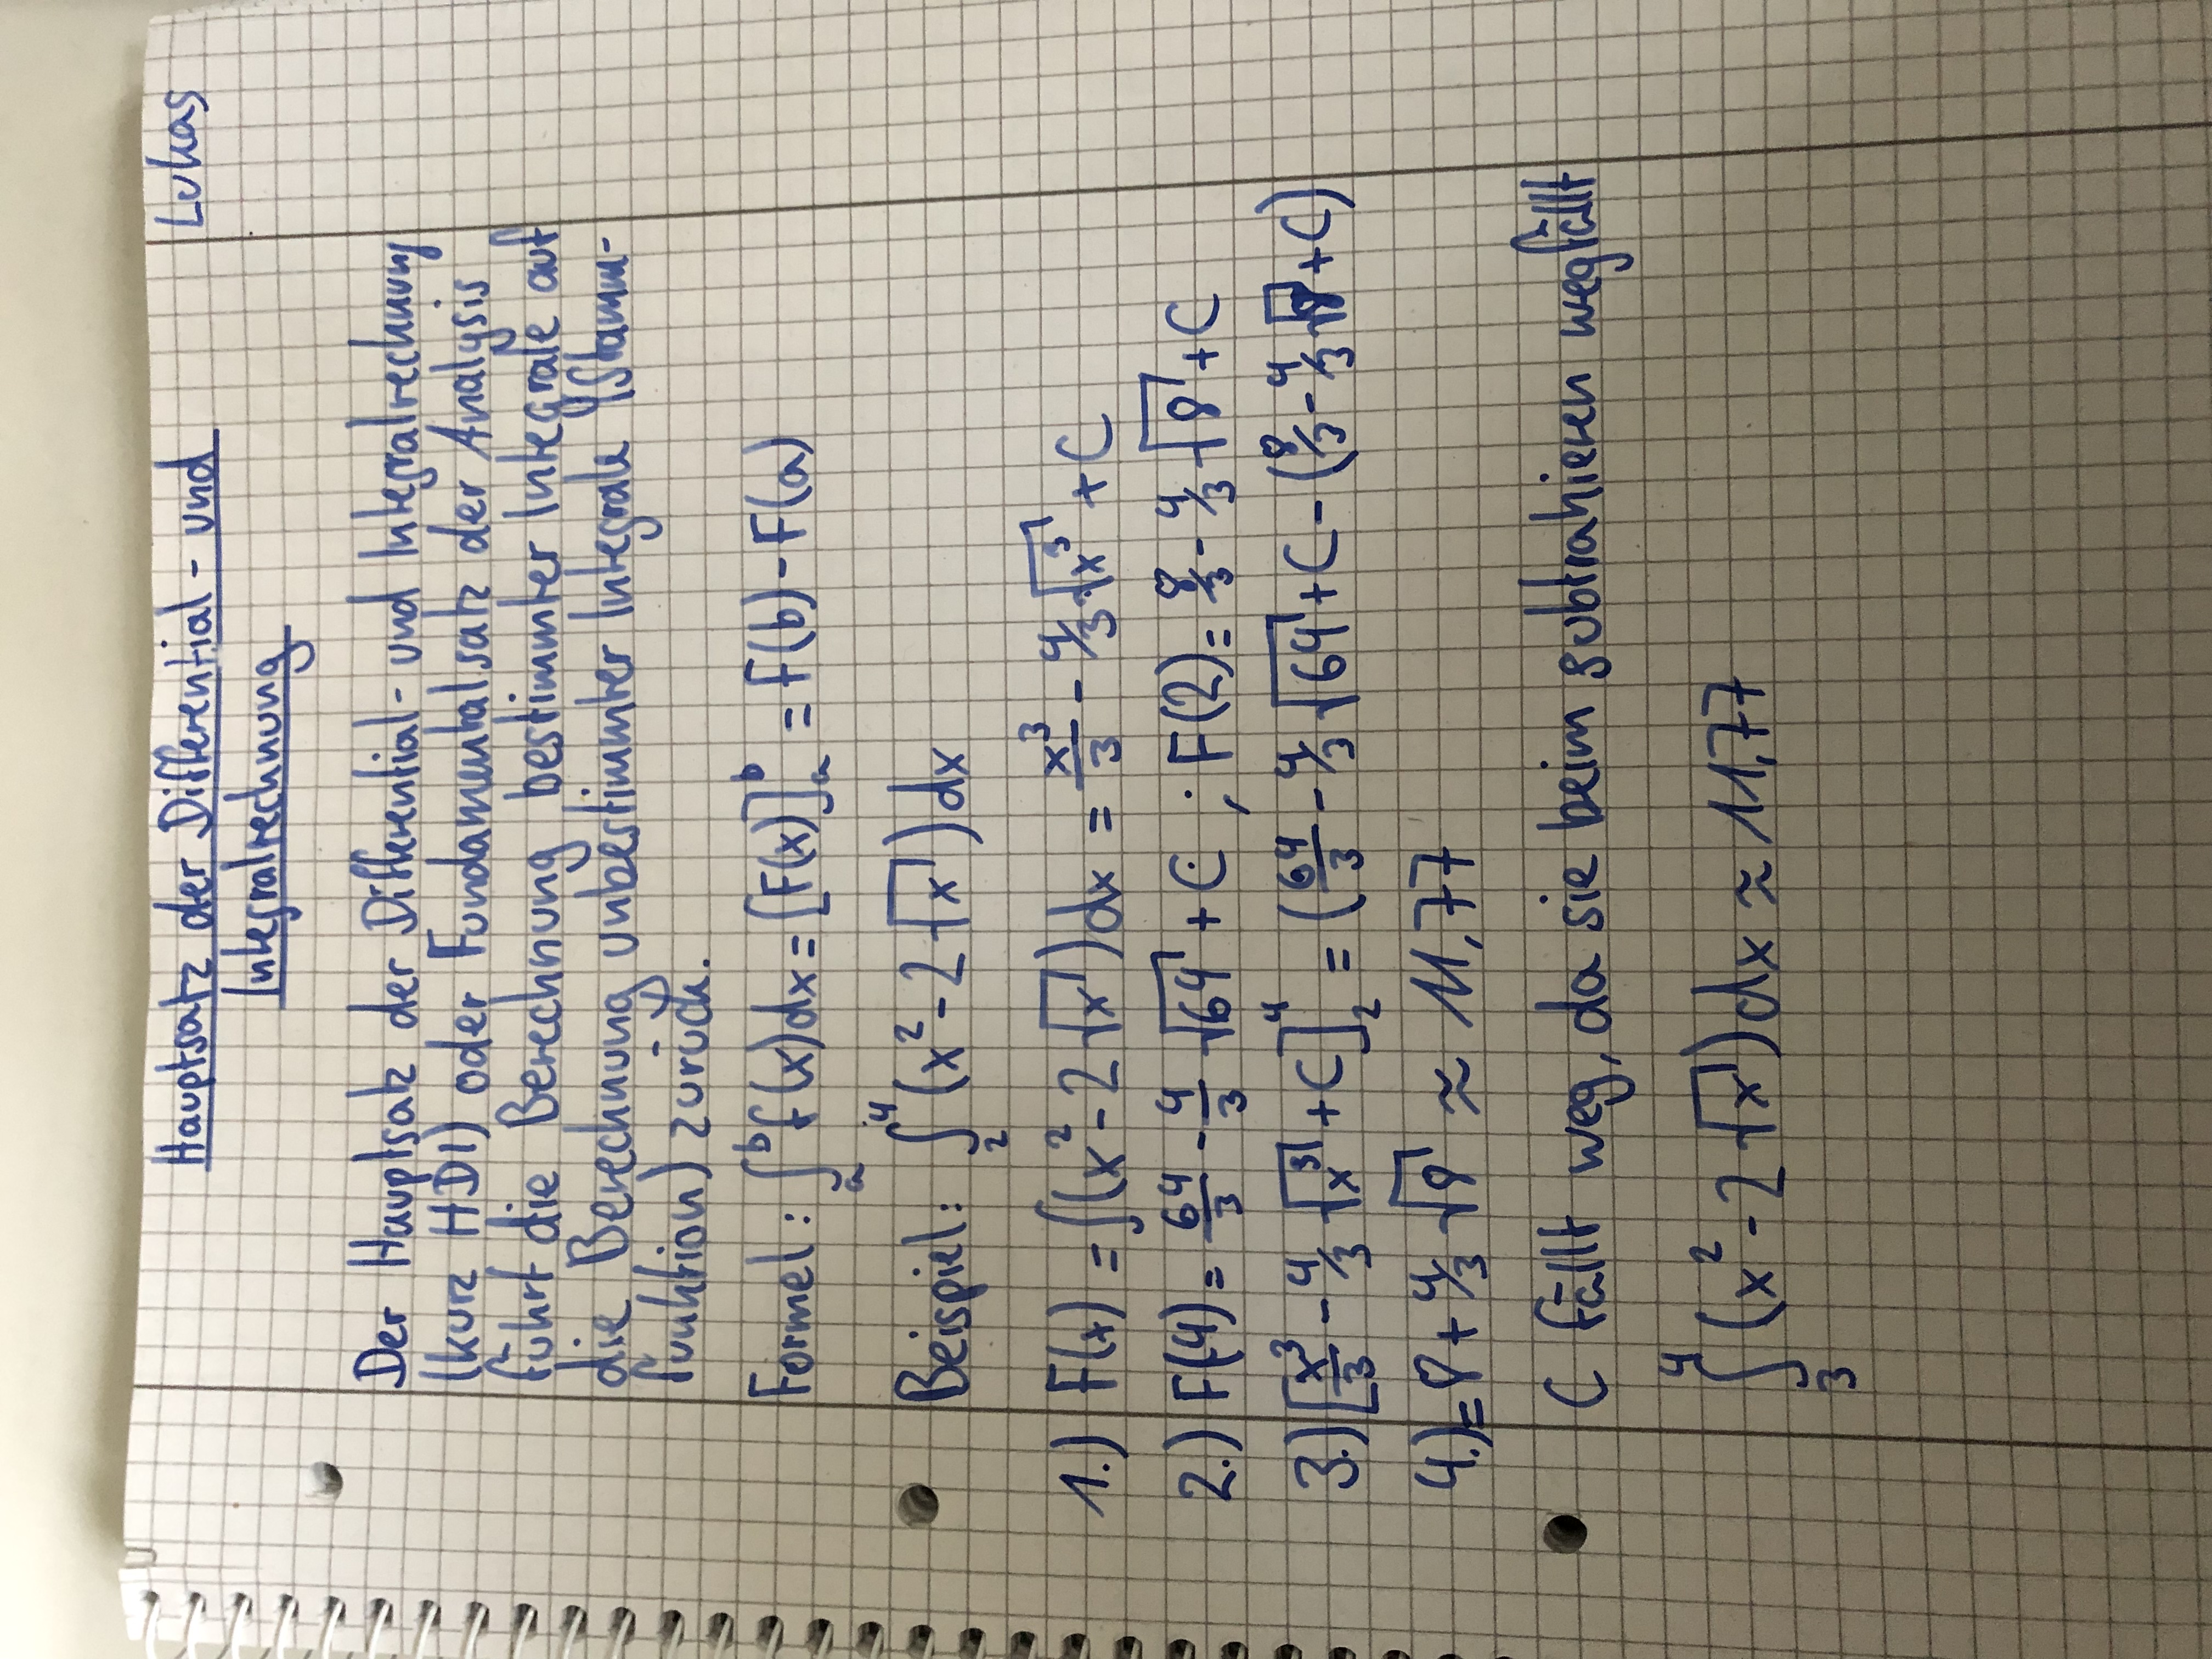 Lukas
Hauptsatz der Differential- und
Integralrechnung
Der Hauptsatz der Differential- und Integralrechnung
(kurz HDI) oder Fundamentalsatz der Analysis
führt die Berechnung bestimmter Integrale auf
die Berechnung unbestimmter Integrale (Stamm-
funktion) zurück.
Formel: ∫ₐᵇ f(x)dx = [F(x)]ₐᵇ = F(b) - F(a)
Beispiel: ∫₂⁴ (x² - 2√x)dx
1.) F(x) = ∫(x² - 2√x)dx = x³/3 - 4/3 √x³ + C
2.) F(4) = 64/3 - 4/3 √64 + C ; F(2) = 8/3 - 4/3 √8 + C
3.) [x³/3 - 4/3 √x³ + C]₂⁴ = (64/3 - 4/3 √64 + C - (8/3 - 4/3 √8 + C)
4.) = 8 + 4/3 √8 ≈ 11,77
C fällt weg, da sie beim subtrahieren wegfällt
∫₃⁴ (x² - 2√x)dx ≈ 11,77